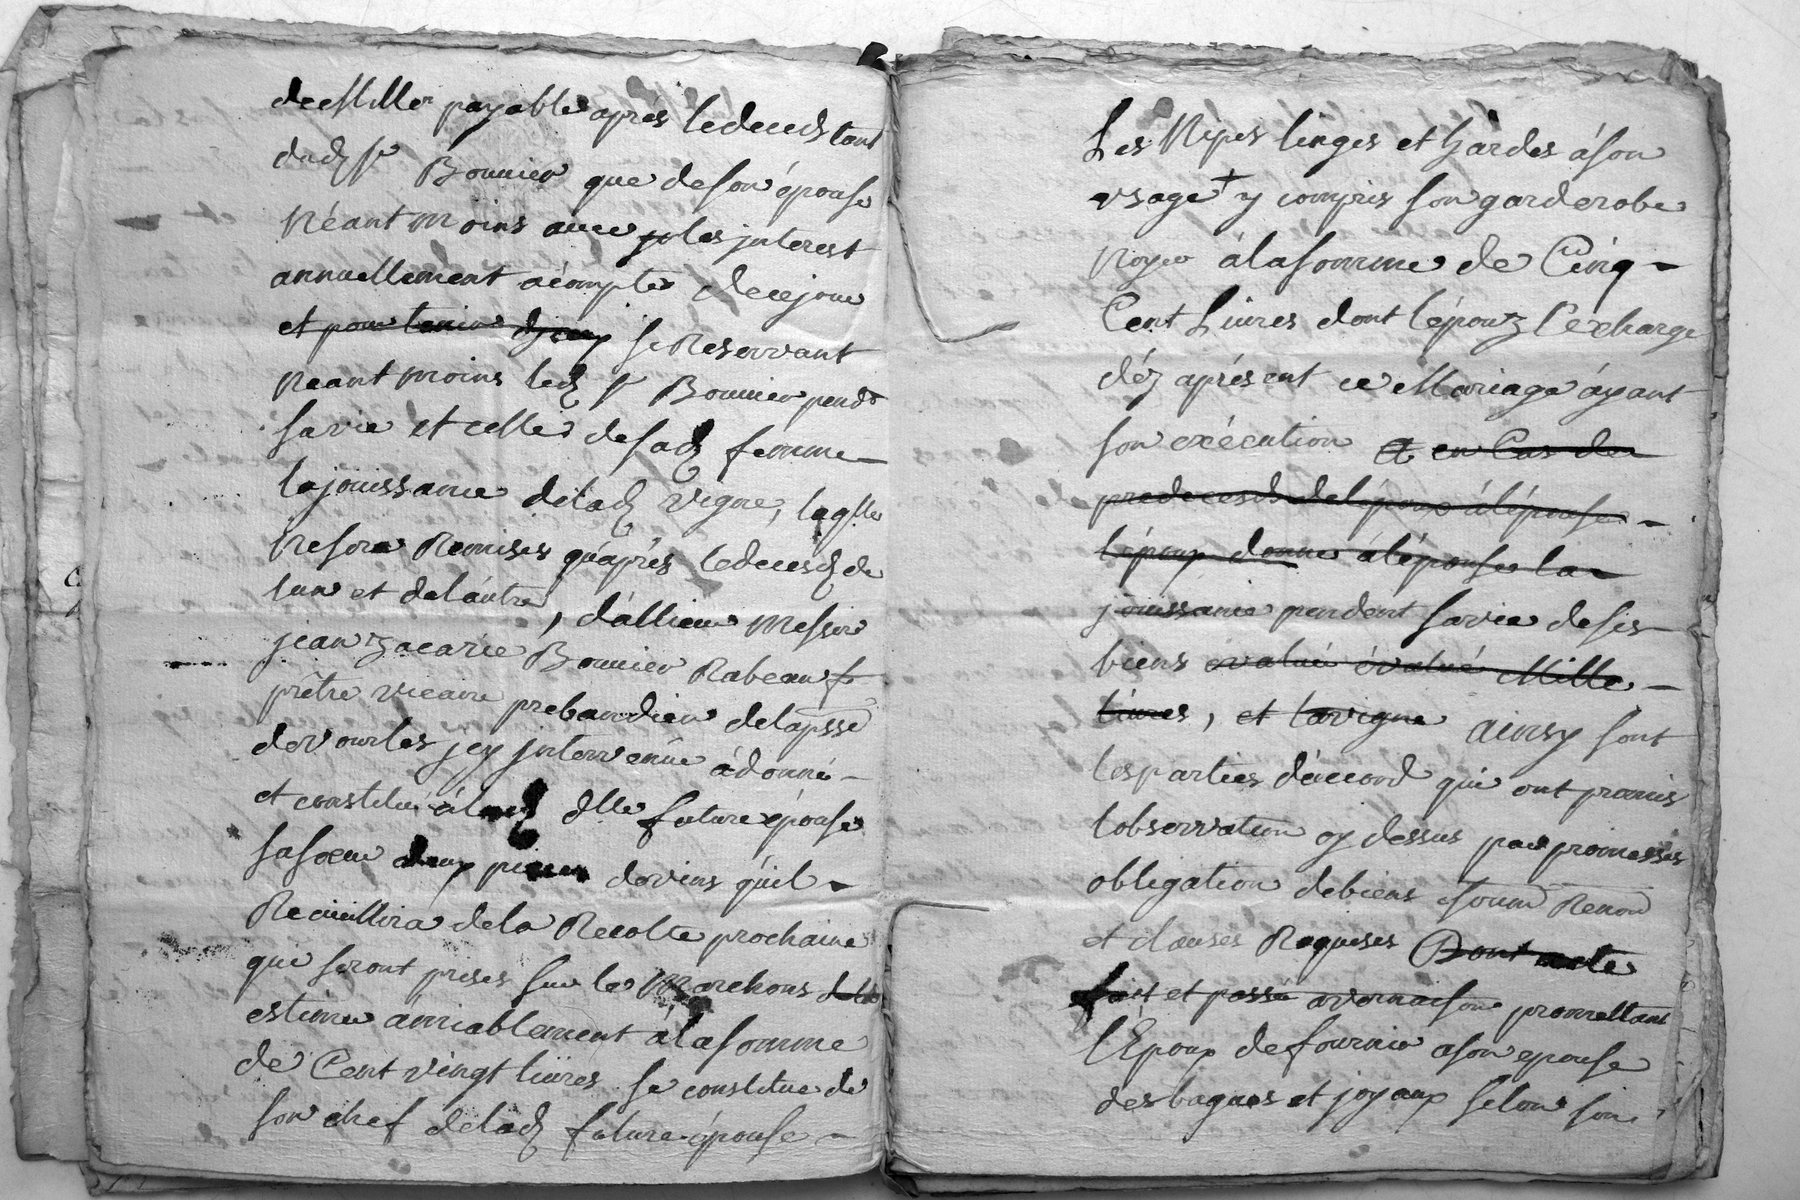 de Mille payable après le deceds tant
dud. sr Bouvier que de son épouse
Néantmoins avec les jnterest
annuellement àcompter de ce jour
et pour tenir se Reservant
Neantmoins led. sr Bouvier pendt
sa vie et celle de sad. femme
la jouissance de lad. vigne, laqlle
Ne sera Remises qu'après le deceds de
lun et de lautre, d'allieur Messire
jean zacarie Bouvier Rabeau
prêtre vicaire prebandier de la psse
de vourles jcy jntervenüe à donné
et constitué à lad. dlle future épouse
sa soeur deux pieces de vins qu'il
Recüeillira de la Recolte prochaine
que seront prises sur le Marchons
estimé àmiablement à la somme
de Cent vingt livres se constitue de
son chef de lad. future épouse
Les Nipes linges et hardes à son
usage + y compris son garderobe
Noyer à la somme de Cinq
Cent Livres dont l'épouz l'excharge
déz apresent ce Mariage äyant
son exécution et en Cas de
predeceds de l'époux à l'épouse
l'époux donne à l'épouse la
jouissance pendent sa vie de ses
biens évalué évalué Mille
livres, et la vigne ainsy sont
les parties d'accord qui ont promis
l'observation cy dessus par promesses
obligation de biens soum Renon
et clauses Requises Dont acte
fait et passé a vernaison promettant
l'Epoux de fournir a son epouse
des bagues et joyaux selon son